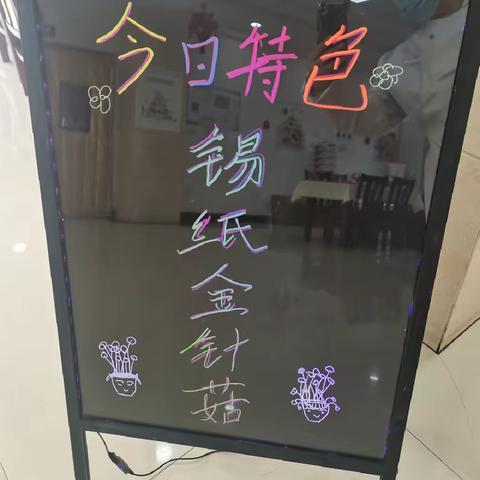 今日特色
锡纸金针菇